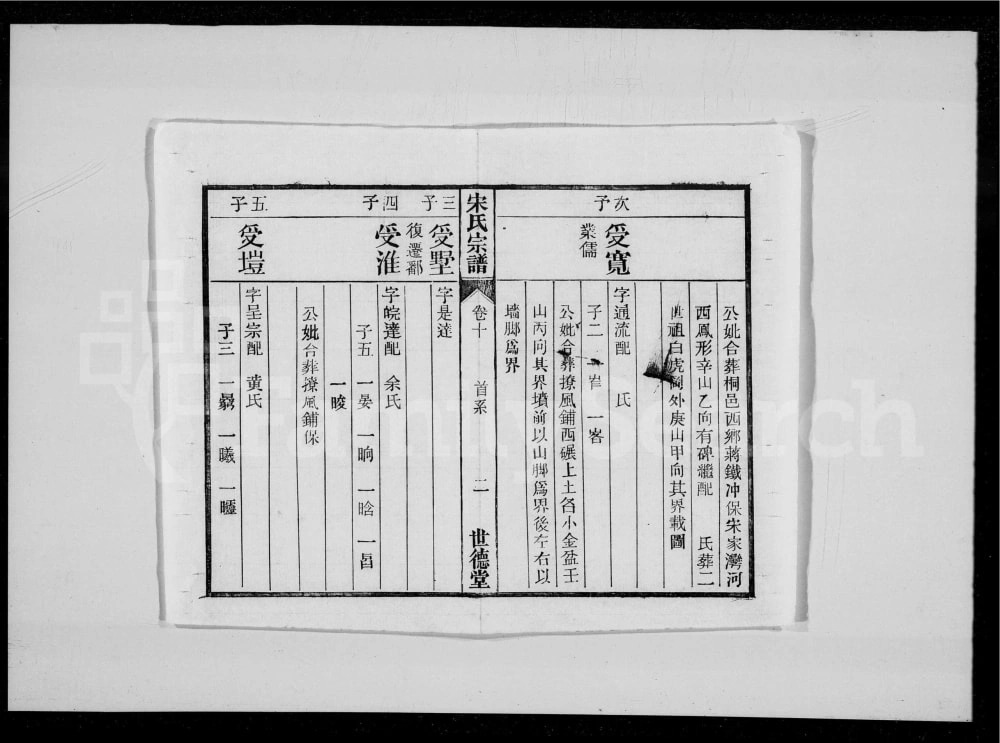 公妣合葬桐邑西鄉蔣鐵冲保宋家灣河
西鳳形辛山乙向有碑繼配 氏葬二
世祖白虎岡外庚山甲向其界載圖
次子
受寬
業儒
字通流配 氏
子二 一 一客
公妣合葬撩風鋪西碾上土名小金盆壬
山丙向其界墳前以山脚為界後左右以
墻脚為界
宋氏宗譜
卷十 首系 二
世德堂
三子
受墅
復遷鄱
字是達
四子
受淮
字皖達配 余氏
子五 一晏 一晌 一晗 一昌
一晙
公妣合葬撩風鋪保
五子
受塏
字呈宗配 黄氏
子三 一㬎 一曦 一曞